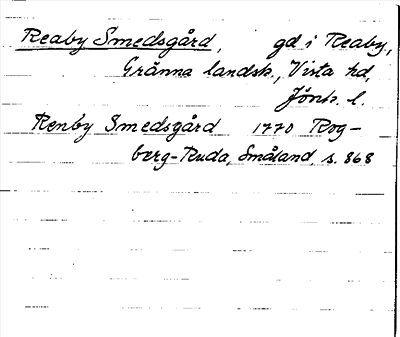 Reaby Smedsgård, gd i Reaby,
Gränna landsk., Vista hd,
Jönk. l.
Renby Smedsgård 1770 Rog-
berg-Ruda, Småland, s. 868